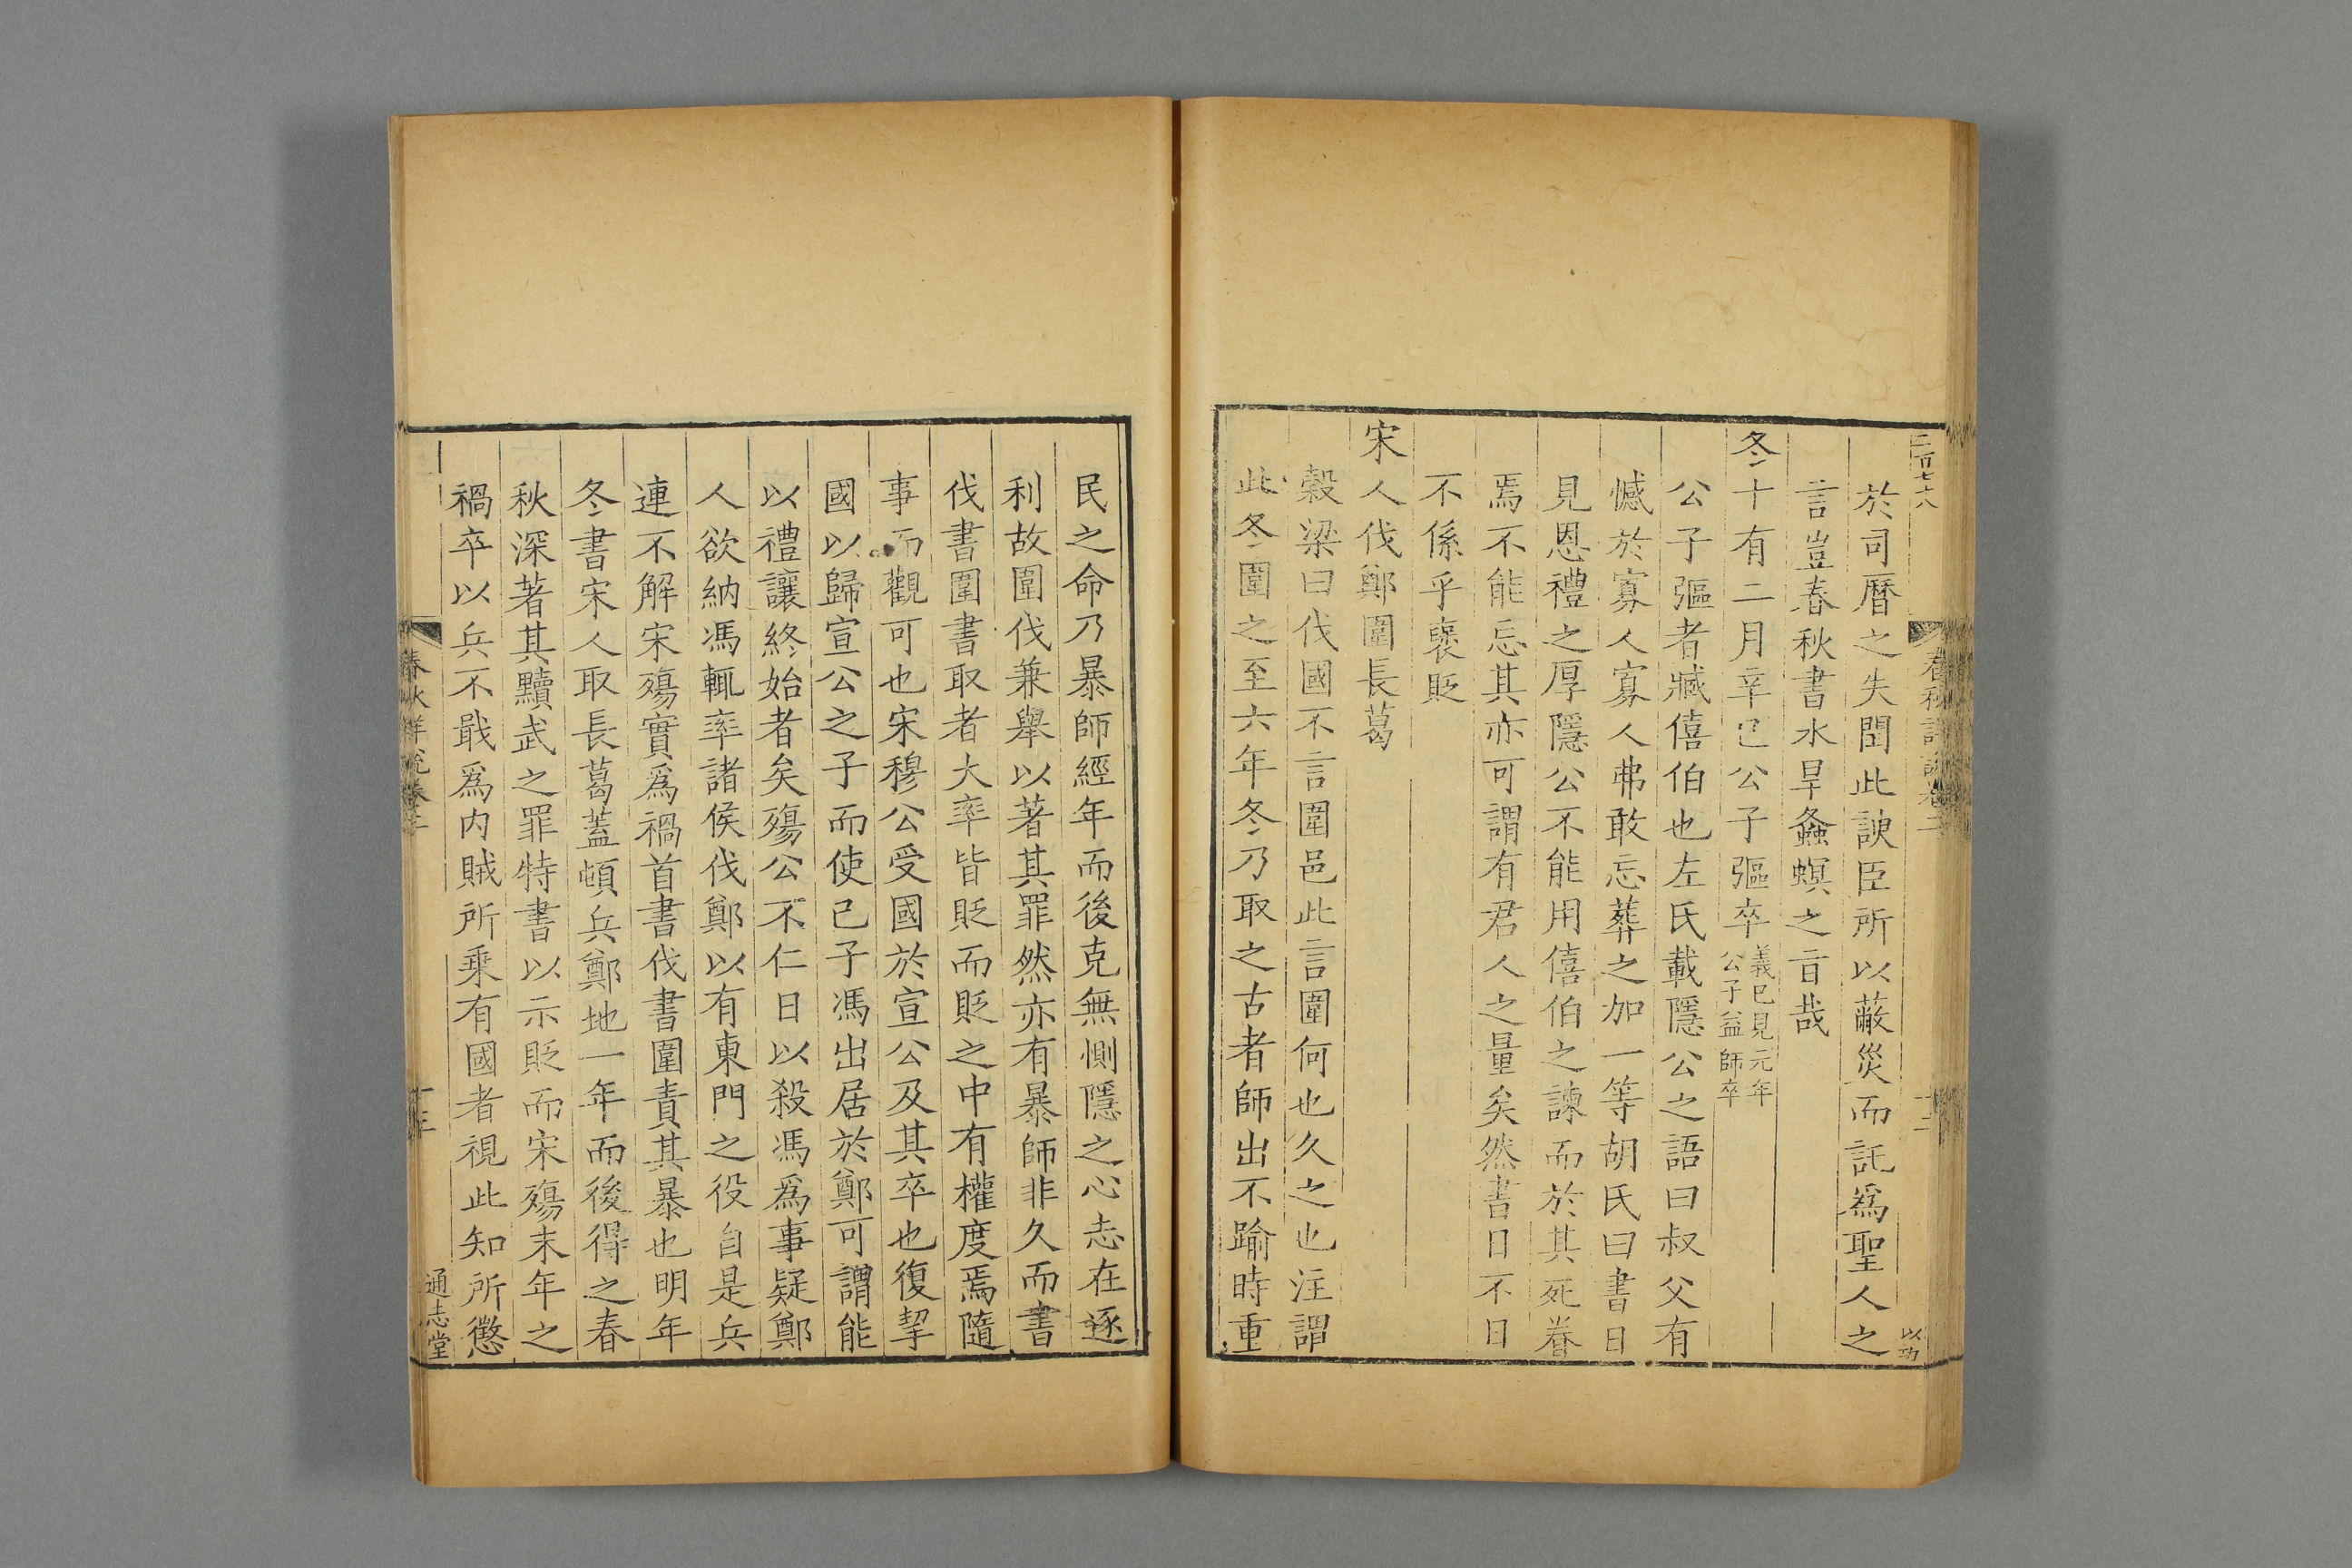 於司曆之失閏此諛臣所以蔽災而託爲聖人之
言豈春秋書水旱螽螟之旨哉
冬十有二月辛巳公子彄卒義已見元年公子益師卒
公子彄者臧僖伯也左氏載隱公之語曰叔父有
憾於寡人寡人弗敢忘葬之加一等胡氏曰書日
見恩禮之厚隱公不能用僖伯之諫而於其死眷
焉不能忘其亦可謂有君人之量矣然書日不日
不係乎襃貶
宋人伐鄭圍長葛
穀梁曰伐國不言圍邑此言圍何也久之也注謂
此冬圍之至六年冬乃取之古者師出不踰時重
民之命乃暴師經年而後克無惻隱之心志在逐
利故圍伐兼舉以著其罪然亦有暴師非久而書
伐書圍書取者大率皆貶而貶之中有權度焉隨
事而觀可也宋穆公受國於宣公及其卒也復挈
國以歸宣公之子而使己子馮出居於鄭可謂能
以禮讓終始者矣殤公不仁日以殺馮爲事疑鄭
人欲納馮輒率諸侯伐鄭以有東門之役自是兵
連不解宋殤實爲禍首書伐書圍責其暴也明年
冬書宋人取長葛蓋頓兵鄭地一年而後得之春
秋深著其黷武之罪特書以示貶而宋殤末年之
禍卒以兵不戢爲内賊所乘有國者視此知所懲
春秋詳說卷二
通志堂